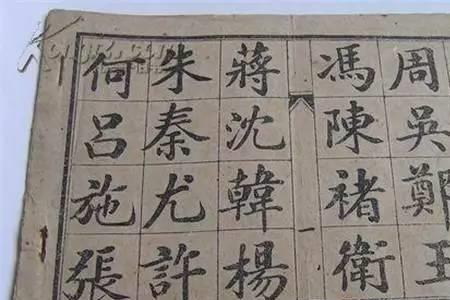 周吳鄭王
馮陳褚衛
一
蔣沈韓楊
朱秦尤許
何呂施張